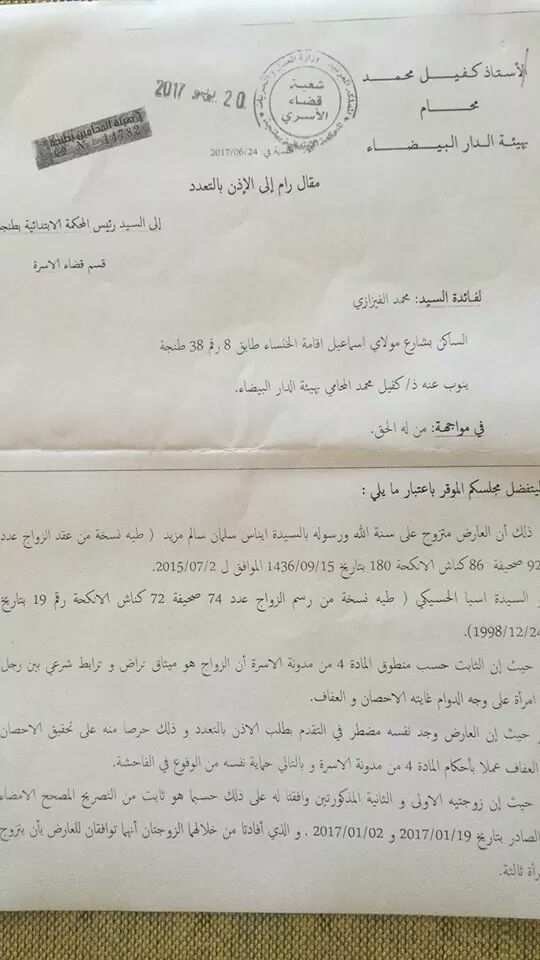 الأستاذ كفيل محمد
محام
بهيئة الدار البيضاء
شعبة
قضاء
الأسري
20 2017
14782
في: 2017/06/24
مقال رام إلى الإذن بالتعدد
إلى السيد رئيس المحكمة الابتدائية بطنجة
قسم قضاء الاسرة
لفائدة السيد: محمد الفيزازي
الساكن بشارع مولاي اسماعيل اقامة الخنساء طابق 8 رقم 38 طنجة
ينوب عنه ذ/ كفيل محمد المحامي بهيئة الدار البيضاء.
في مواجهة: من له الحق.
ليتفضل مجلسكم الموقر باعتبار ما يلي :
ذلك أن العارض متزوج على سنة الله ورسوله بالسيدة ايناس سلمان سالم مزيد ( طيه نسخة من عقد الزواج عدد
92 صحيفة 86 كناش الانكحة 180 بتاريخ 1436/09/15 الموافق ل 2015/07/2.
و السيدة اسيا الحسيكي ( طيه نسخة من رسم الزواج عدد 74 صحيفة 72 كناش الانكحة رقم 19 بتاريخ
1998/12/24).
حيث إن الثابت حسب منطوق المادة 4 من مدونة الاسرة أن الزواج هو ميثاق تراض و ترابط شرعي بين رجل
امرأة على وجه الدوام غايته الاحصان و العفاف.
حيث إن العارض وجد نفسه مضطر في التقدم بطلب الاذن بالتعدد و ذلك حرصا منه على تحقيق الاحصان
العفاف عملا بأحكام المادة 4 من مدونة الاسرة و بالتالي حماية نفسه من الوقوع في الفاحشة.
حيث إن زوجتيه الاولى و الثانية المذكورتين وافقتا له على ذلك حسبما هو ثابت من التصريح المصحح الامضاء
الصادر بتاريخ 2017/01/19 و 2017/01/02 . و الذي أفادتا من خلالهما الزوجتان أنهما توافقان للعارض بأن يتزوج
مرأة ثالثة.